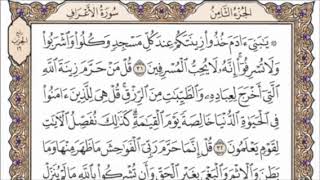 سُورَةُ الأَعْرَافِ الجُزْءُ الثَّامِنُ
۞ يَٰبَنِىٓ ءَادَمَ خُذُوا۟ زِينَتَكُمْ عِندَ كُلِّ مَسْجِدٍ وَكُلُوا۟ وَٱشْرَبُوا۟
وَلَا تُسْرِفُوٓا۟ إِنَّهُۥ لَا يُحِبُّ ٱلْمُسْرِفِينَ ٣١ قُلْ مَنْ حَرَّمَ زِينَةَ ٱللَّهِ
ٱلَّتِىٓ أَخْرَجَ لِعِبَادِهِۦ وَٱلطَّيِّبَٰتِ مِنَ ٱلرِّزْقِ قُلْ هِىَ لِلَّذِينَ ءَامَنُوا۟
فِى ٱلْحَيَوٰةِ ٱلدُّنْيَا خَالِصَةً يَوْمَ ٱلْقِيَٰمَةِ كَذَٰلِكَ نُفَصِّلُ ٱلْءَايَٰتِ
لِقَوْمٍ يَعْلَمُونَ ٣٢ قُلْ إِنَّمَا حَرَّمَ رَبِّىَ ٱلْفَوَٰحِشَ مَا ظَهَرَ مِنْهَا وَمَا
بَطَنَ وَٱلْإِثْمَ وَٱلْبَغْىَ بِغَيْرِ ٱلْحَقِّ وَأَن تُشْرِكُوا۟ بِٱللَّهِ مَا لَمْ يُنَزِّلْ